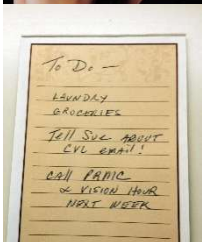 To Do —
LAUNDRY
GROCERIES
Tell Sue ABOUT
CVC email!
CALL
& VISION HOUR
NEXT WEEK